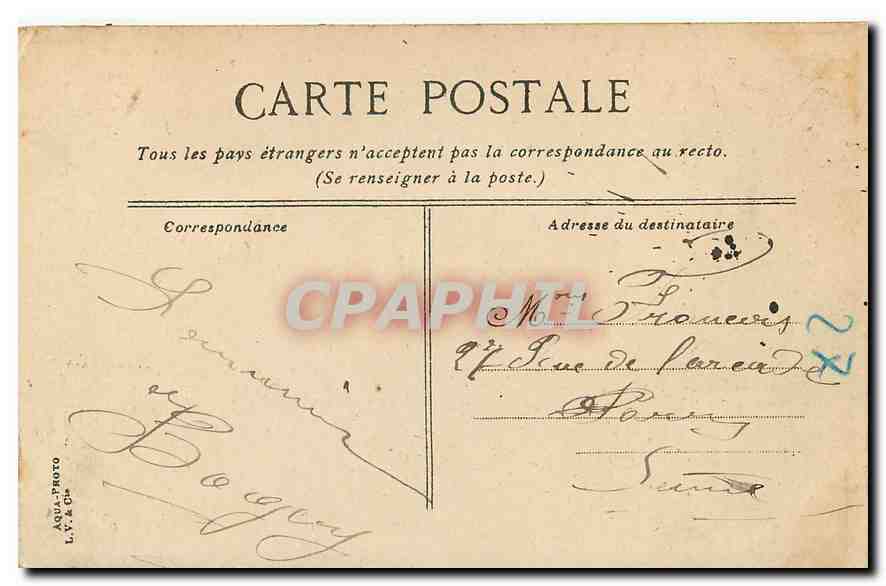 CARTE POSTALE
Tous les pays étrangers n'acceptent pas la correspondance au recto.
(Se renseigner à la poste.)
Correspondance
Adresse du destinataire
CPAPHIL
Souvenir
de
Mme François
27 Rue de
Seine
27
AQUA-PHOTO
L.V. & Cie